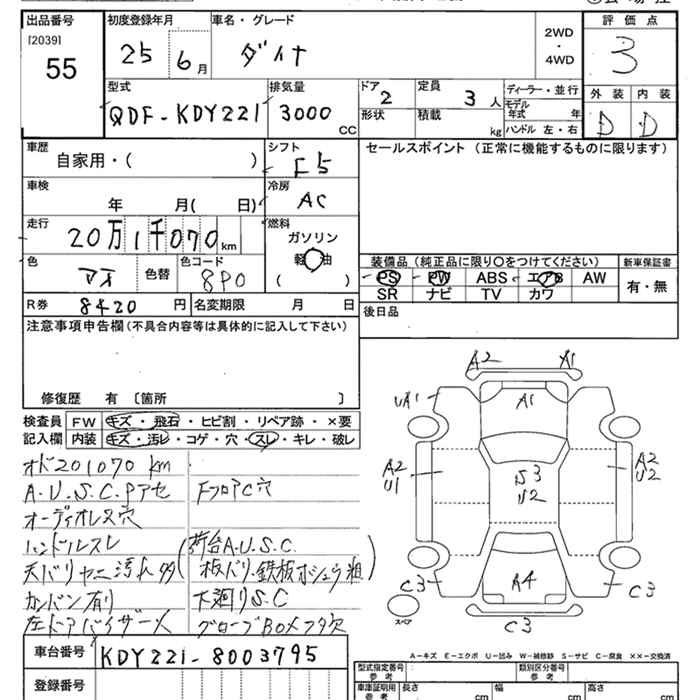 出品番号 初度登録年月 車名・グレード 2WD・4WD 評価点
[2039] 55 25 6月 ダイナ 3
型式 排気量 ドア 2 定員 3人 ディーラー・並行 外装 内装
QDF-KDY221 3000 CC 形状 積載 kg モデル年式 年 ハンドル 左・右 D D
車歴 シフト セールスポイント (正常に機能するものに限ります)
自家用・( ) F5
車検 冷房
年 月( 日) AC
走行 燃料
20万1千070km ガソリン
軽油
( )
装備品(純正品に限り○をつけてください) 新車保証書
色 色替 色コード PS PW ABS エアB AW 有・無
アオ 8P0 SR ナビ TV カワ
R券 8420円 名変期限 月 日 後日品
注意事項申告欄(不具合内容等は具体的に記入して下さい)
修復歴 有 〔箇所 〕
検査員 FW キズ・飛石・ヒビ割・リペア跡・×要
記入欄 内装 キズ・汚レ・コゲ・穴・スレ・キレ・破レ
オド201070km
A.U.S.C.Pアセ FフロアC穴
オーディオレス穴
ハンドルスレ 荷台A.U.S.C.
天バリヤニ汚れ多 板バリ・鉄板ホシュウ粗
カンバン有り 下廻りS.C
左ドアバイザー欠 グローブBOXフタ欠
A2 A1
UA1 A1
A2 U1 S3 U2 A2 U2
C3 A4 C3
スペア C3
A-キズ E-エクボ U-凹み W-補修跡 S-サビ C-腐食 ××-交換済
車台番号 KDY221-8003795
登録番号
型式指定番号 参考 類別区分番号 参考
車庫証明用 参考 長さ cm 幅 cm 高さ cm